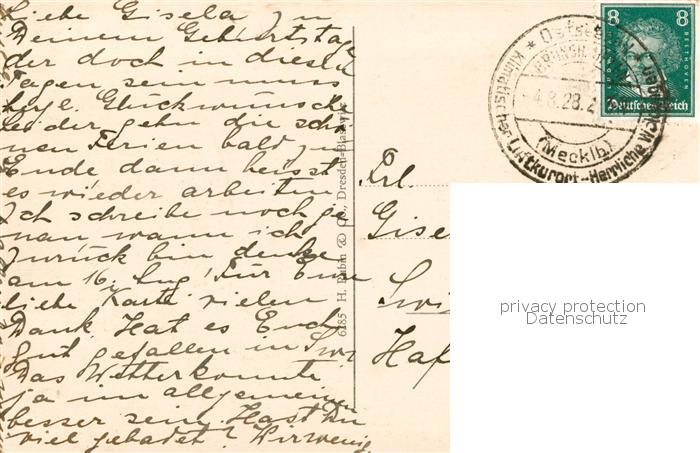 Liebe Gisela zu
Deinem Geburtstage
der doch in diesen
Tagen sein muss
hzgl. Glückwünsche
leider gehn die schö-
nen Ferien bald zu
Ende dann heisst
es wieder arbeiten
Ich schreibe noch ge-
nau wann ich
zurück bin denke
am 16. Aug! Für Eure
liebe Karte vielen
Dank. Hat es Euch
gut gefallen in Swi
Das Wetter konnte
ja im allgemeinen
besser sein. Hast Du
viel gebadet? Wir wenig
6285 H. Rubin & Co., Dresden-Blasewitz
Frl.
Gise
Swi
Haf
8 8
LUDW. VAN BEETHOVEN
Deutsches Reich
Ostseebad
-4.8.28.
(Mecklb)
Klimatischer Luftkurort-Herrliche
privacy protection
Datenschutz